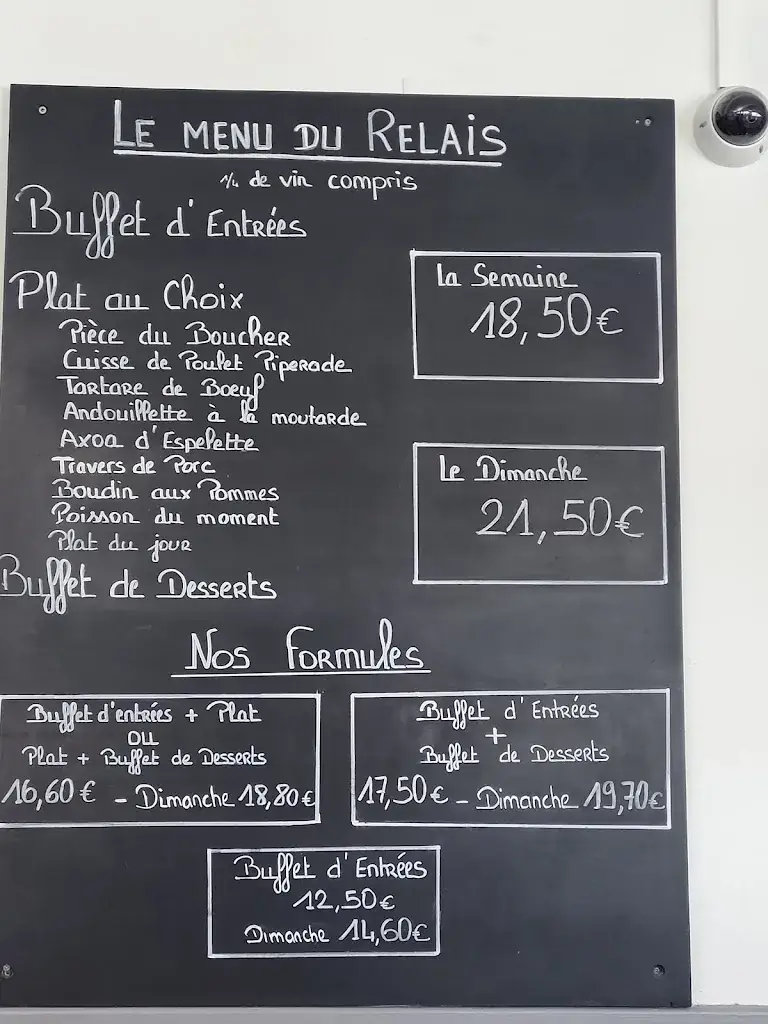 LE MENU DU RELAIS
1/4 de vin compris
Buffet d'Entrées
Plat au Choix
Pièce du Boucher
Cuisse de Poulet Piperade
Tartare de Boeuf
Andouillette à la moutarde
Axoa d'Espelette
Travers de Porc
Boudin aux Pommes
Poisson du moment
Plat du jour
Buffet de Desserts
La Semaine
18,50€
Le Dimanche
21,50€
Nos Formules
Buffet d'entrées + Plat
OU
Plat + Buffet de Desserts
16,60€ - Dimanche 18,80€
Buffet d'Entrées
+
Buffet de Desserts
17,50€ - Dimanche 19,70€
Buffet d'Entrées
12,50€
Dimanche 14,60€